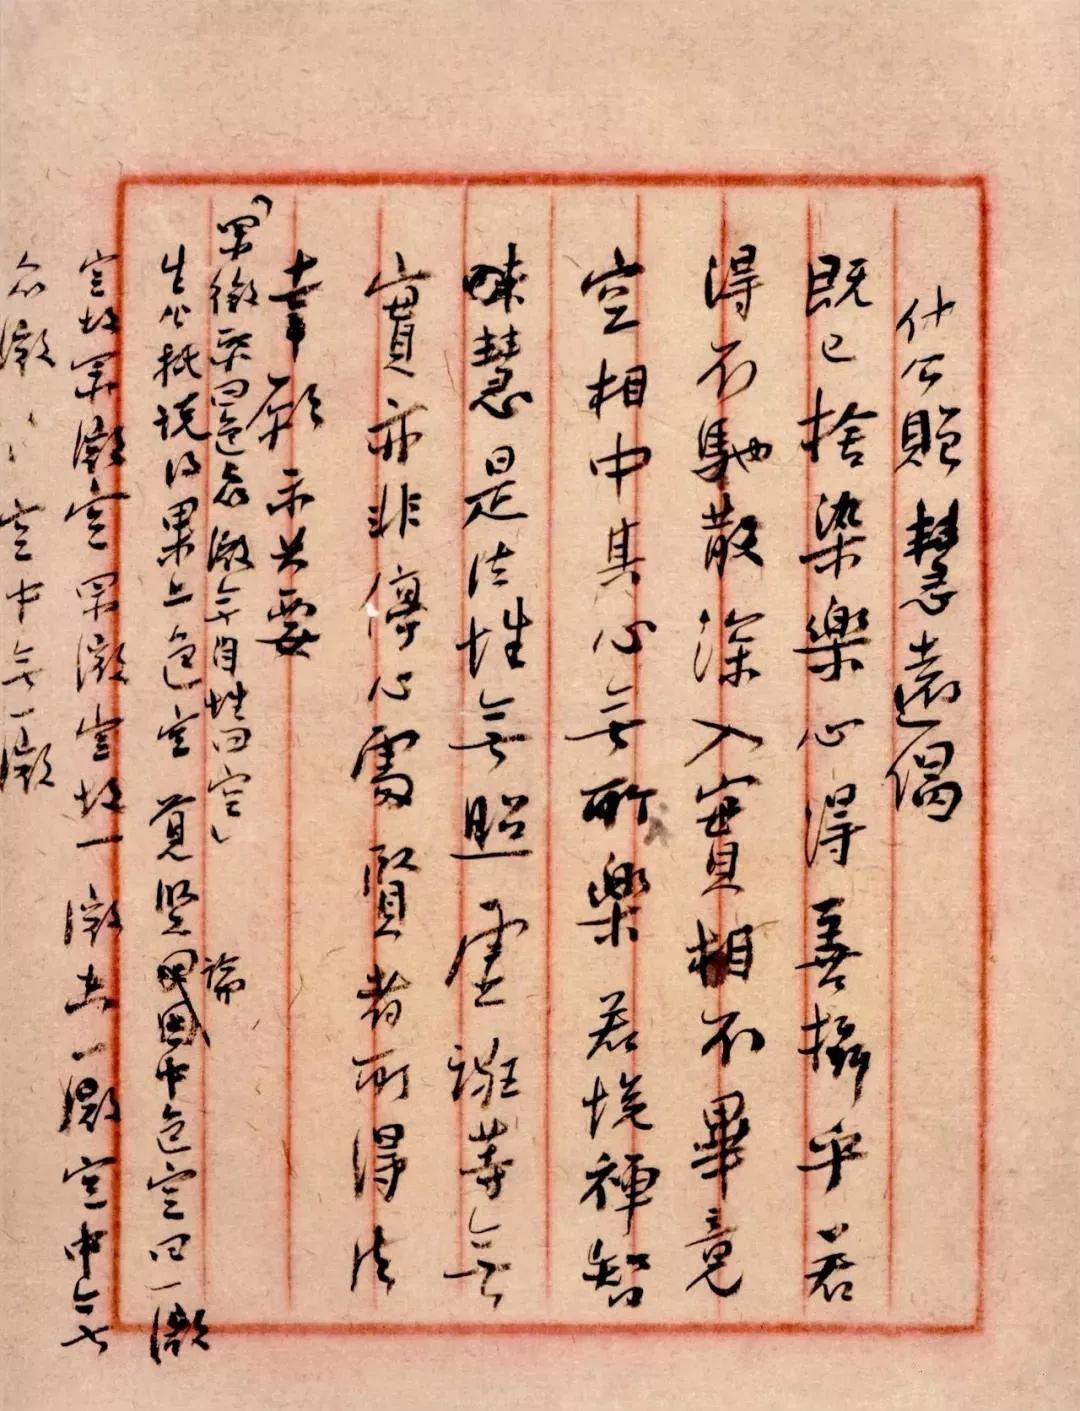 什公贈慧遠偈
既已捨染樂心得善攝乎若
得不馳散深入實相不畢竟
空相中其心無所樂若悅禪智
慧是法性無照虛誑等無
實亦非停心處賢者所得法
幸願示其要
眾微聚曰色衆微無自性曰空
生公秪說得果上色空 覓賢 因中色空曰一微
空故眾微空眾微空故一微 一微空中無
衆微 空中無一微